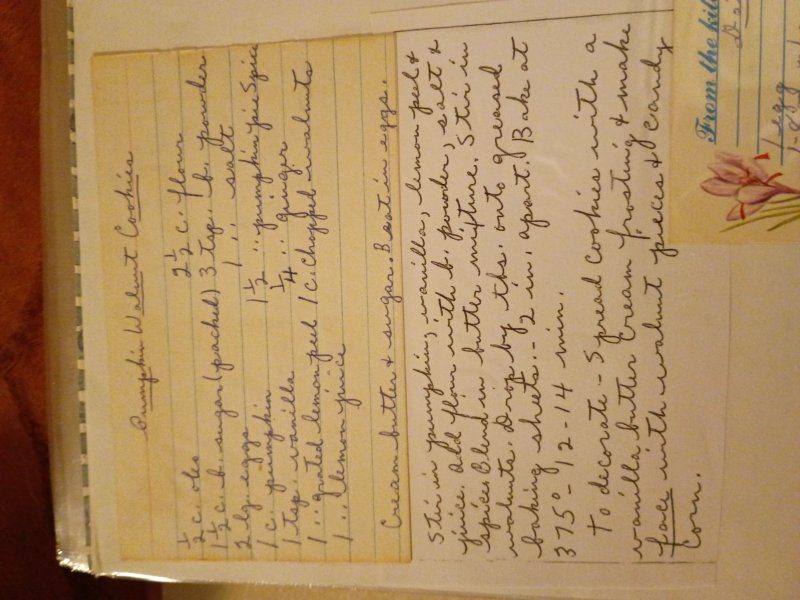 Pumpkin Walnut Cookies
1/2 c. oleo 2 1/2 c. flour
1 1/2 c. b. sugar (packed) 3 tsp. b. powder
2 lg. eggs 1 " salt
1 c. pumpkin 1 1/2 " pumpkin pie spice
1 tsp. vanilla 1/4 " ginger
1 " grated lemon peel 1 c. chopped walnuts
1 " lemon juice
Cream butter & sugar. Beat in eggs.
Stir in pumpkin, vanilla, lemon peel &
juice. Add flour with b. powder, salt &
spices. Blend in butter mixture. Stir in
walnuts. Drop by tbs. onto greased
baking sheets - 2 in. apart. Bake at
375° - 12-14 min.
To decorate - Spread cookies with a
vanilla butter cream frosting & make
face with walnut pieces & candy
corn.
From the
1 egg